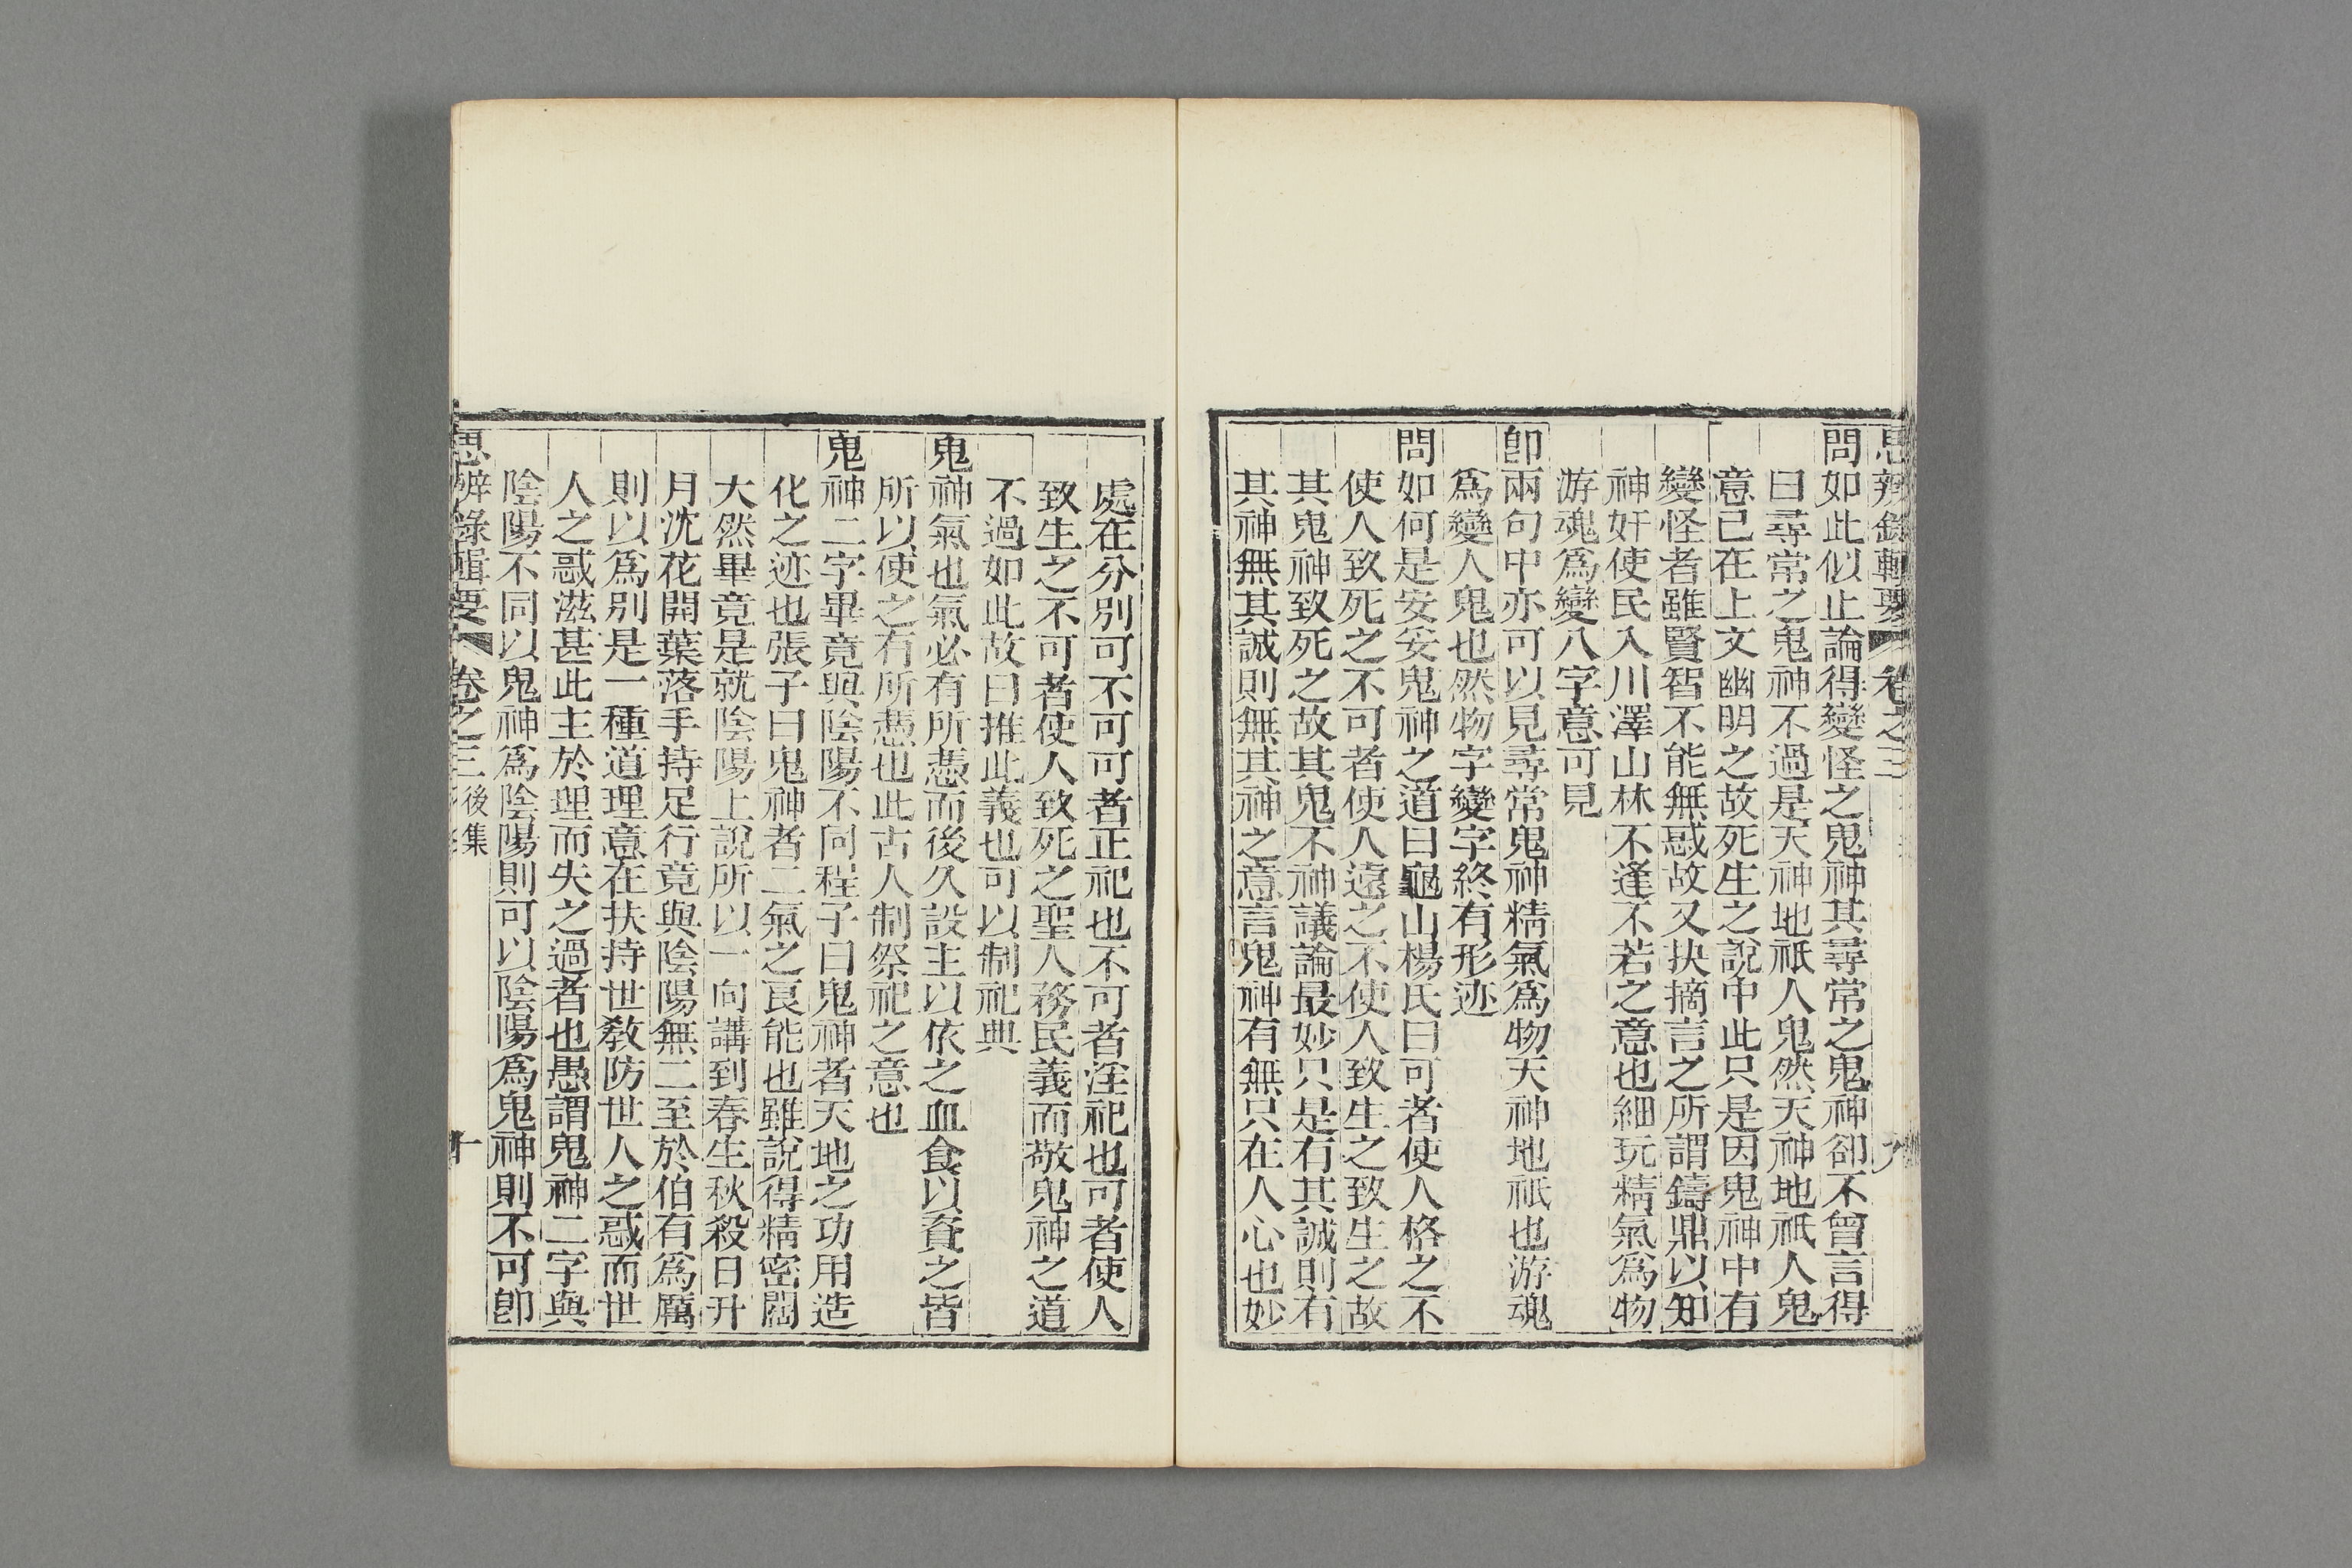 思辨錄輯要 卷之三
問如此似止論得變怪之鬼神其尋常之鬼神卻不曾言得
曰尋常之鬼神不過是天神地祇人鬼然天神地祇人鬼
意已在上文幽明之故死生之說中此只是因鬼神中有
變怪者雖賢智不能無惑故又抉摘言之所謂鑄鼎以知
神奸使民入川澤山林不逢不若之意也細玩精氣爲物
游魂爲變八字意可見
卽兩句中亦可以見尋常鬼神精氣爲物天神地祇也游魂
爲變人鬼也然物字變字終有形迹
問如何是安妥鬼神之道曰龜山楊氏曰可者使人格之不
使人致死之不可者使人遠之不使人致生之致生之故
其鬼神致死之故其鬼不神議論最妙只是有其誠則有
其神無其誠則無其神之意言鬼神有無只在人心也妙
處在分別可不可可者正祀也不可者淫祀也可者使人
致生之不可者使人致死之聖人務民義而敬鬼神之道
不過如此故曰推此義也可以制祀典
鬼神氣也氣必有所憑而後久設主以依之血食以資之皆
所以使之有所憑也此古人制祭祀之意也
鬼神二字畢竟與陰陽不同程子曰鬼神者天地之功用造
化之迹也張子曰鬼神者二氣之良能也雖說得精密闊
大然畢竟是就陰陽上說所以一向講到春生秋殺日升
月沈花開葉落手持足行竟與陰陽無二至於伯有爲厲
則以爲別是一種道理意在扶持世敎防世人之惑而世
人之惑滋甚此主於理而失之過者也愚謂鬼神二字與
陰陽不同以鬼神爲陰陽則可以陰陽爲鬼神則不可卽
思辨錄輯要 卷之三 後集 十